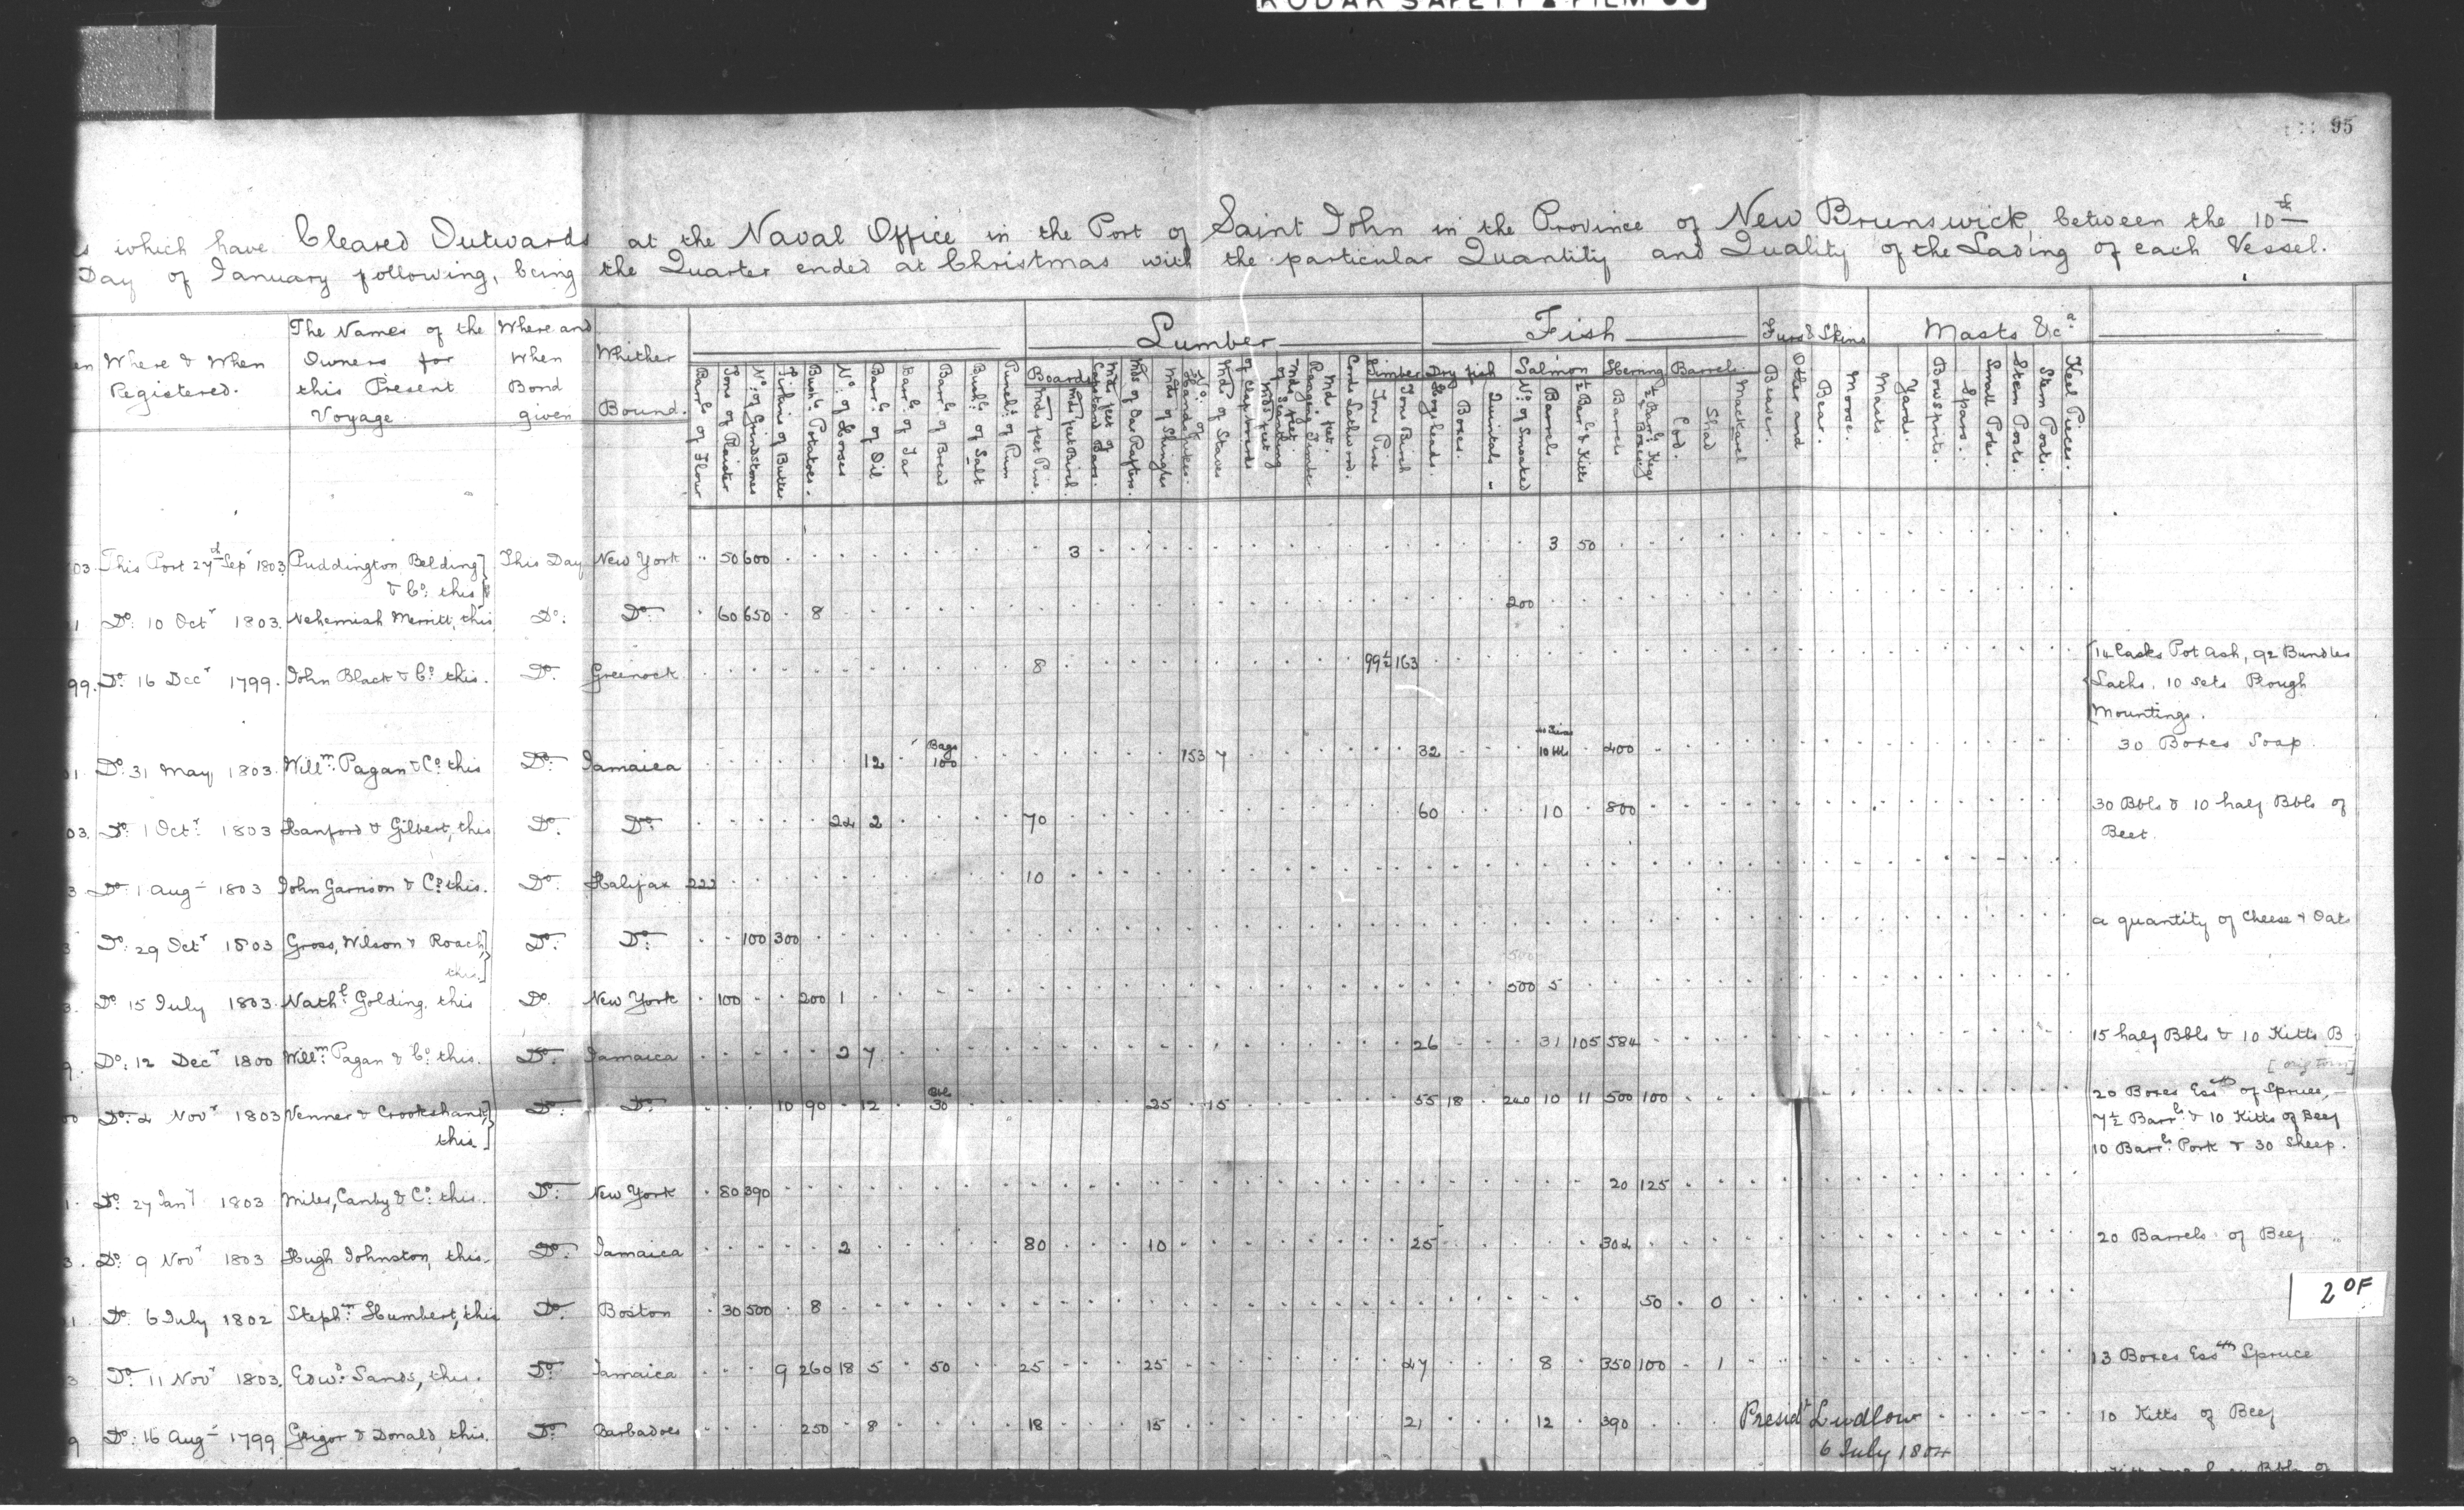 KODAK SAFETY FILM
95
s which have Cleared Outwards at the Naval Office in the Port of Saint John in the Province of New Brunswick, between the 10th
Day of January following, being the Quarter ended at Christmas with the particular Quantity and Quality of the Lading of each Vessel.
Where & When Registered.
The Names of the Owners for this Present Voyage
Where and When Bond given
Whither Bound.
Lumber
Fish
Furs & Skins
Masts &ca
Boards
Timber
Dry fish
Salmon
Herring
Barrels
Barrls of Flour
Tons of Plaister
No. of Grindstones
Firkins of Butter
Bushls Potatoes.
No. of Horses
Barrls of Oil
Barrls of Tar
Barrls of Bread
Bushls of Salt
Punchs of Rum
Mds feet Pine.
Mds feet Birch.
Mds feet of Capstand Bars.
Mds of Oar Rafters.
Mds of Shingles
No. of Handspikes.
Mds of Staves
Mds feet of Scantling
Mds feet Ranging Timber
Cords Lathwood.
Tons Pine
Tons Birch
Hogsheads.
Boxes.
Quintals
No. of Smoaked
Barrels.
½ Barls & Kitts
Barrels
½ Barls Kegs & Boxes
Cod.
Shad
Mackarel
Beaver.
Otter and
Bear.
Moose.
Masts
Yards.
Bowsprits.
Spars.
Small Poles.
Stern Posts.
Stem Posts.
Keel Pieces.
03. This Port 27th Sepr 1803 Puddington Belding & Co: this This Day New York 50 600 3 3 50
1 Do: 10 Octr 1803. Nehemiah Merritt, this Do: Do: 60 650 8 200
99. Do: 16 Decr 1799. John Black & Co: this. Do: Greenock 8 99½ 163 14 Casks Pot Ash, 92 Bundles
Laths, 10 Sets Plough
Mountings.
1. Do: 31 May 1803. Willm: Pagan & Co: this Do: Jamaica 12 Bags 100 153 7 32 400 30 Boxes Soap
03. Do: 1 Octr 1803 Hanford & Gilbert, this Do: Do: 24 2 70 60 10 800 30 Bbls & 10 half Bbls of
Beet.
3 Do: 1 Aug 1803 John Garrison & Co: this. Do: Halifax 222 10
3 Do: 29 Octr 1803 Gross, Wilson & Roach, this. Do: Do: 100 300 a quantity of Cheese & Oats
3. Do: 15 July 1803. Nathl: Golding, this Do. New York 100 200 1 500 5
9. Do: 12 Decr 1800 Willm: Pagan & Co: this. Do: Jamaica 2 7 26 31 105 584 15 half Bbls & 10 Kitts B
00 Do: 2 Novr 1803 Venner & Crookshank, this Do: Do: 10 90 12 30 25 15 55 18 240 10 11 500 100 20 Boxes Essce of Spruce,
7½ Barrls & 10 Kitts of Beef
10 Barrls Pork & 30 Sheep.
1. Do: 27 Jany 1803 Miles, Canby & Co: this. Do: New York 80 390 20 125
3. Do: 9 Novr 1803 Hugh Johnston, this. Do: Jamaica 2 80 10 25 304 20 Barrels of Beef
1 Do: 6 July 1802 Stephn: Humbert, this Do: Boston 30 500 8 50 0
3 Do: 11 Novr 1803. Edwd: Sands, this. Do: Jamaica 9 260 18 5 50 25 25 47 8 350 100 1 13 Boxes Essce Spruce
9 Do: 16 Aug 1799 Grigor & Donald, this. Do: Barbadoes 250 8 18 15 21 12 390 10 Kitts of Beef
Presidt Ludlow
6 July 1804
2 OF